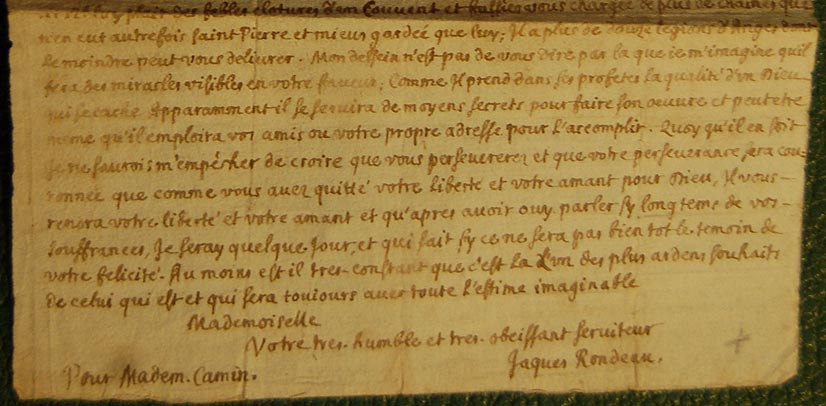 des foibles clotures d'un Couvent et fussiez vous chargée de plus de chaines que
n'en eut autrefois Saint Pierre et mieux gardée que luy; Il a plus de douze legions d'Anges dont
le moindre peut vous delivrer. Mon dessein n'est pas de vous dire par la que je m'imagine qu'il
fera des miracles visibles en votre faveur; Comme Il prend dans ses profetes la qualité d'un Dieu
qui se cache Apparamment il se servira de moyens secrets pour faire son oeuvre et peutetre
meme qu'il emploira vos amis ou votre propre adresse pour l'accomplir. Quoy qu'il en soit
Je ne saurois m'empécher de croire que vous persevererez et que votre perseverance sera cou-
ronnée que comme vous avez quitté votre liberté et votre amant pour Dieu, Il vous
rendra votre liberté et votre amant et qu'apres avoir ouy parler sy longtems de vos
souffrances, Je seray quelque jour, et qui sait sy ce ne sera pas bien tot le temoin de
votre felicité. Au moins est il tres-constant que c'est la l'un des plus ardens souhaits
de celui qui est et qui sera toujours avec toute l'estime imaginable
Mademoiselle
Votre tres-humble et tres-obeissant serviteur
Jaques Rondeau.
Pour Madem. Camin.